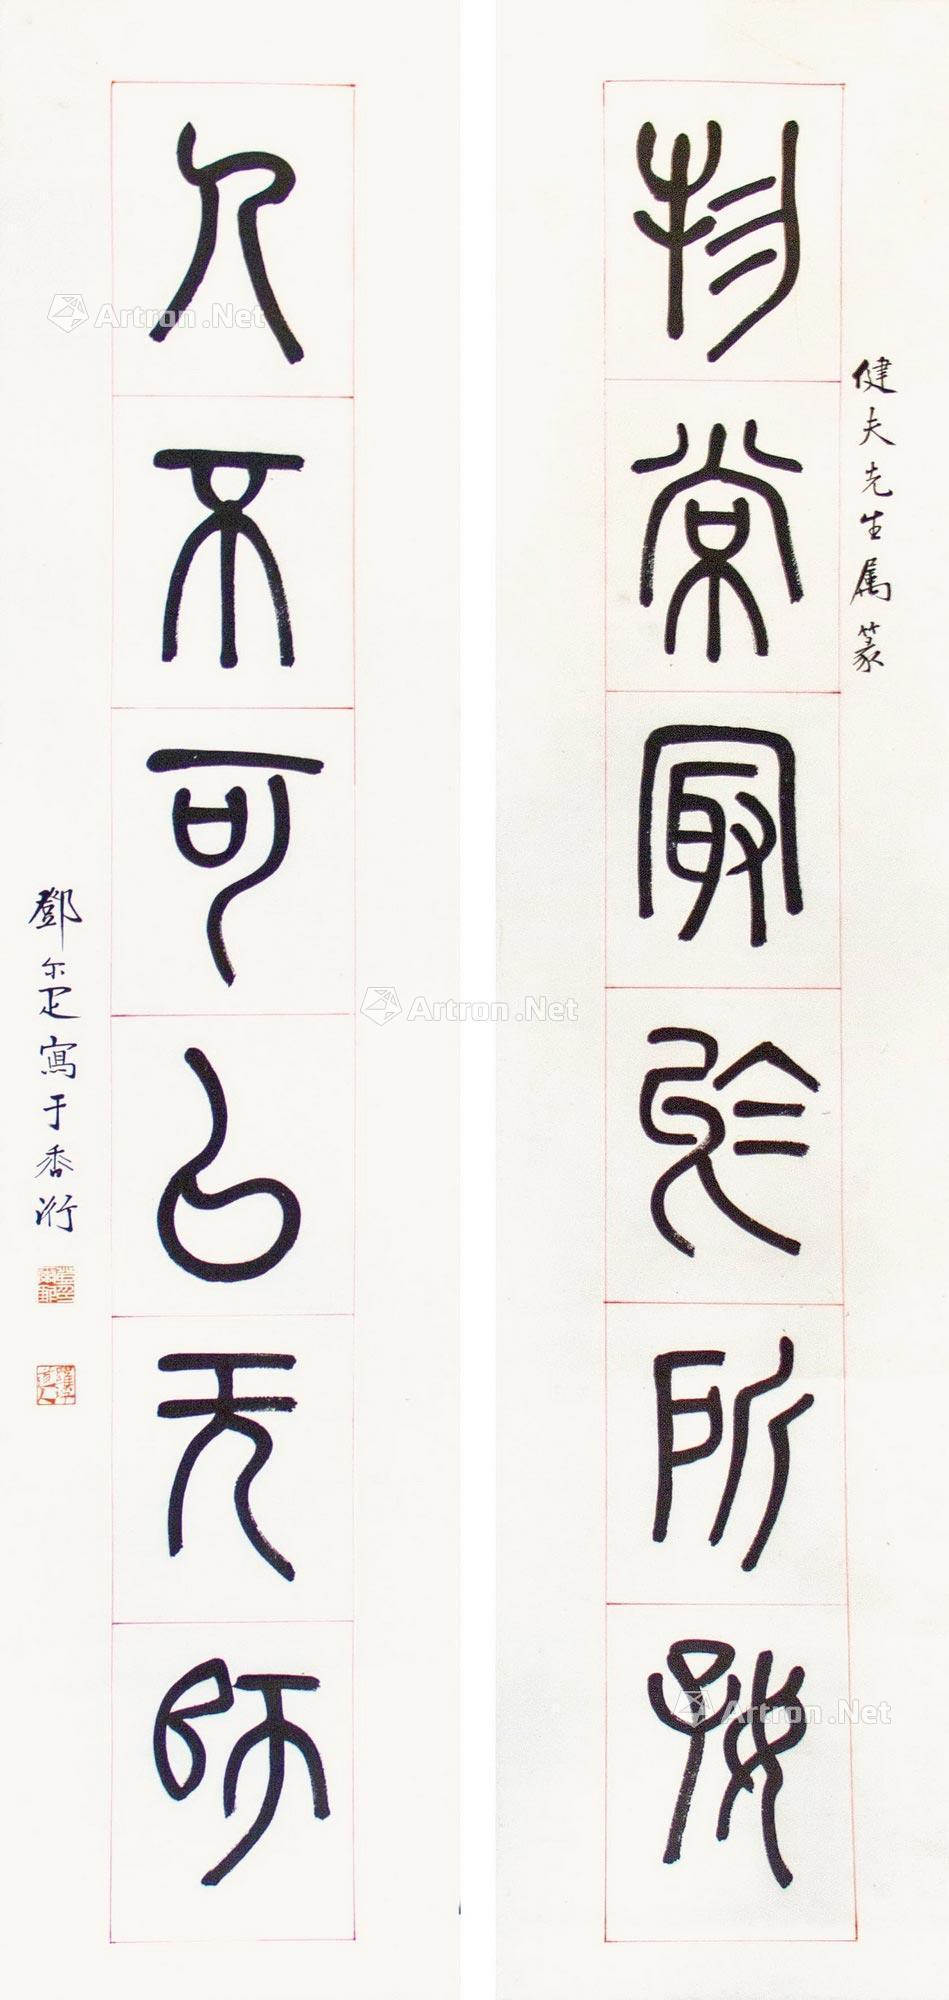 健夫先生属篆
物常冣於所好
人不可㠯无师
鄧尔疋寫于香洐
Artron.Net
Artron.Net
Artron.Net